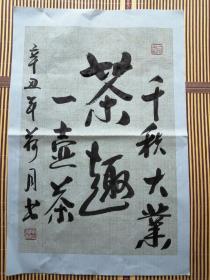 千秋大業
茶趣
一壺茶
辛丑年荷月書